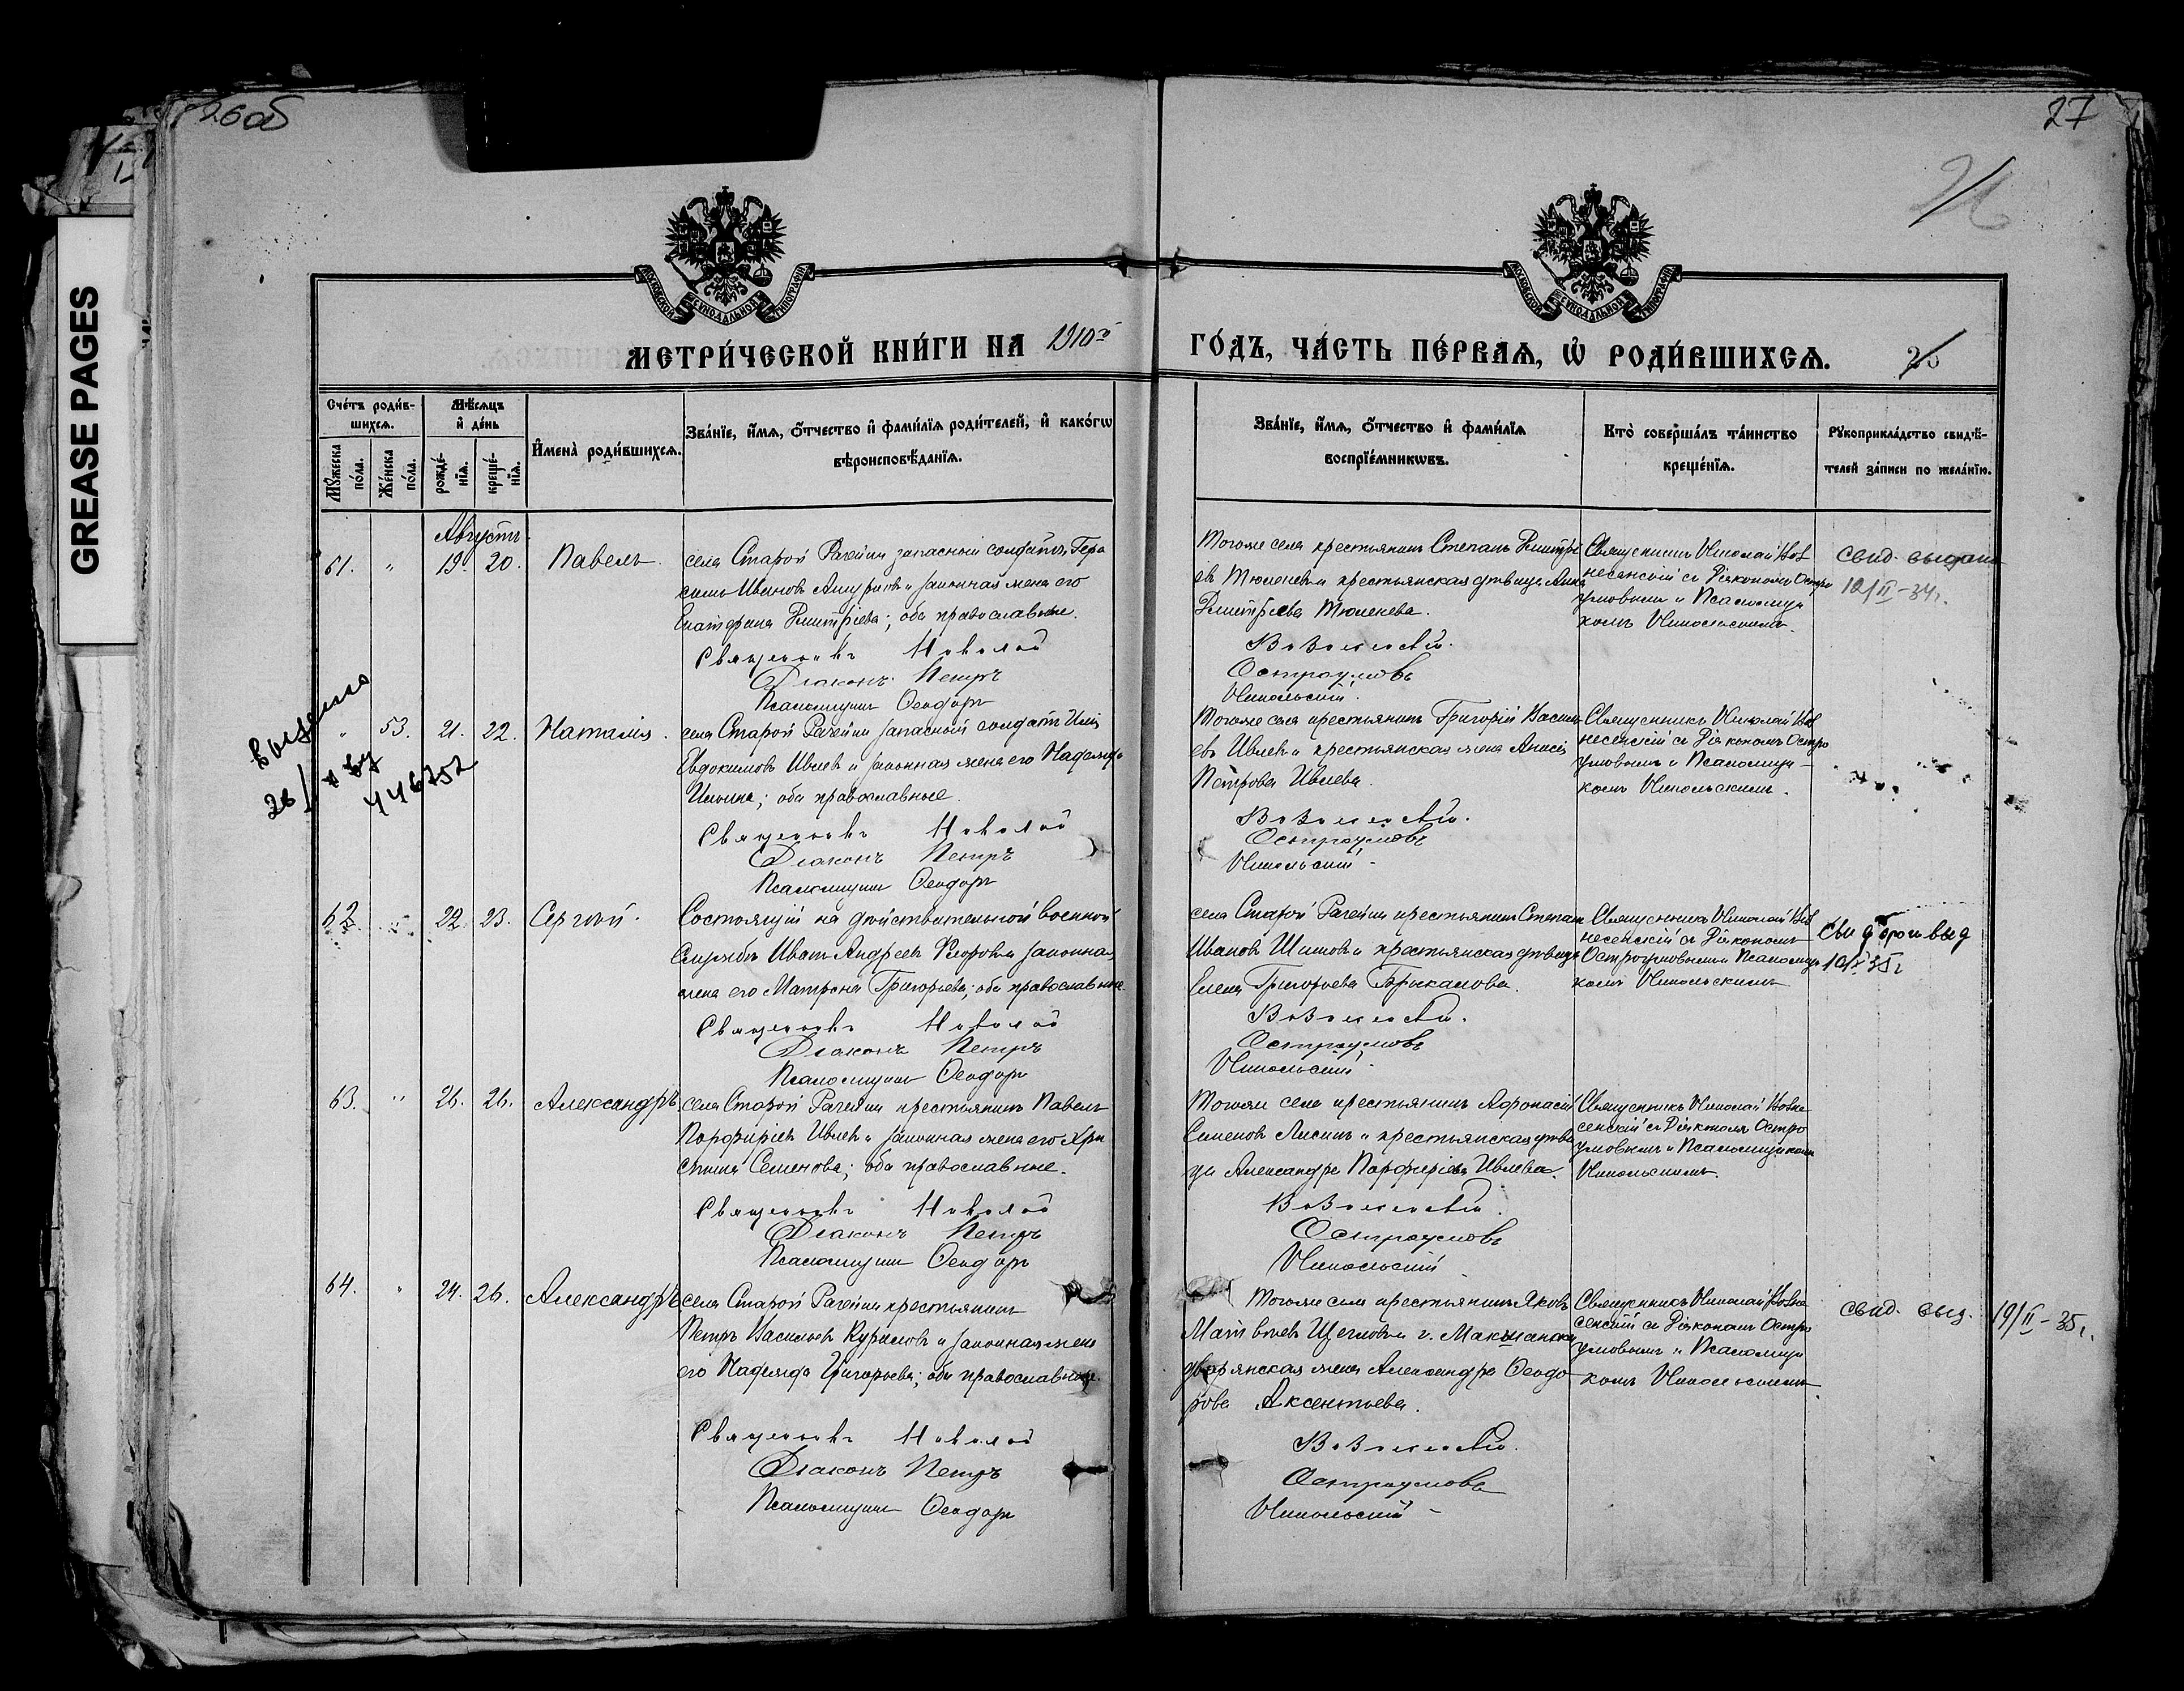 26об
27
26
GREASE PAGES
МОСКОВСКОЙ СѴНОДАЛЬНОЙ ТИПОГРАФІИ
МОСКОВСКОЙ СѴНОДАЛЬНОЙ ТИПОГРАФІИ
МЕТРИ́ЧЕСКОЙ КНИ́ГИ НА 1910й
ГО́ДЪ, ЧА́СТЬ ПЕ́РВАѦ, Ѡ҆ РОДИ́ВШИХСѦ.
26
Сче́тъ роди́вшихсѧ.
Мꙋ́жеска по́ла.
Же́нска по́ла.
Мѣ́сѧцъ и҆ де́нь
рожде́нїѧ.
креще́нїѧ.
И҆мена̀ роди́вшихсѧ.
Зва́нїе, и҆́мѧ, ѻ҆́тчество и҆ фами́лїѧ роди́телей, и҆ како́гѡ
вѣроисповѣ́данїѧ.
Зва́нїе, и҆́мѧ, ѻ҆́тчество и҆ фами́лїѧ
воспрїе́мникѡвъ.
Кто̀ соверша́лъ та́инство
креще́нїѧ.
Рꙋкоприкла́дство свидѣ́-
телей за́писи по жела́нїю.
Августъ
61. " 19. 20. Павелъ.
села Старой Рачейки запасный солдатъ Гера
симъ Ивановъ и законная жена его
Екатерина Димитріева; оба православные.
Священникъ Николай
Діаконъ Петръ
Псаломщикъ Ѳеодоръ
Тогоже села крестьянинъ Степанъ Димитрі
евъ Тюленевъ и крестьянская дѣвица Анна
Димитріева Тюленева.
Вознесенскій.
Остроумовъ
Никольскій.
Священникъ Николай Воз
несенскій съ Діакономъ Остро
умовымъ и Псаломщи
комъ Никольскимъ.
Свид. выдано
12/II-34г.
выдано
446752
" 53. 21. 22. Наталія.
села Старой Рачейки запасный солдатъ Илія
Евдокимовъ Ивлевъ и законная жена его Надежда
Ильина; оба православные.
Священникъ Николай
Діаконъ Петръ
Псаломщикъ Ѳеодоръ
Тогоже села крестьянинъ Григорій Василь
евъ Ивлевъ и крестьянская жена Анисія
Петрова Ивлева.
Вознесенскій.
Остроумовъ
Никольскій
Священникъ Николай Воз
несенскій съ Діакономъ Остро
умовымъ и Псаломщи-
комъ Никольскимъ.
62. " 22. 23. Сергій.
Состоящій на дѣйствительной военной
службѣ Иванъ Андреевъ Ѳеоровъ и законная
жена его Матрона Григорьева; оба православные.
Священникъ Николай
Діаконъ Петръ
Псаломщикъ Ѳеодоръ
села Старой Рачейки крестьянинъ Степанъ
Ивановъ Шиловъ и крестьянская дѣвица
Елена Григорьева Брыкалова.
Вознесенскій.
Остроумовъ
Никольскій
Священникъ Николай Воз
несенскій съ Діакономъ
Остроумовымъ и Псаломщи
комъ Никольскимъ
63. " 26. 26. Александръ.
села Старой Рачейки крестьянинъ Павелъ
Порфиріевъ Ивлевъ и законная жена его Хри
стина Семенова; оба православные.
Священникъ Николай
Діаконъ Петръ
Псаломщикъ Ѳеодоръ
Тогоже села крестьянинъ Аѳонасій
Семеновъ Лисинъ и крестьянская дѣви
ца Александра Порфиріева Ивлева.
Вознесенскій.
Остроумовъ
Никольскій
Священникъ Николай Возне
сенскій съ Діакономъ Остро
умовымъ и Псаломщикомъ
Никольскимъ.
64. " 24. 26. Александръ
села Старой Рачейки крестьянинъ
Петръ Васильевъ Куриловъ и законная жена
его Надежда Григорьева; оба православные.
Священникъ Николай
Діаконъ Петръ
Псаломщикъ Ѳеодоръ
Тогоже села крестьянинъ Яковъ
Матвѣевъ Щегловъ и г. Макшанская
дворянская жена Александра Ѳеодо
рова Аксентьева.
Вознесенскій.
Остроумовъ
Никольскій
Священникъ Николай Возне
сенскій съ Діакономъ Остро
умовымъ и Псаломщи
комъ Никольскимъ.
свид. выд. 19/II-35г.